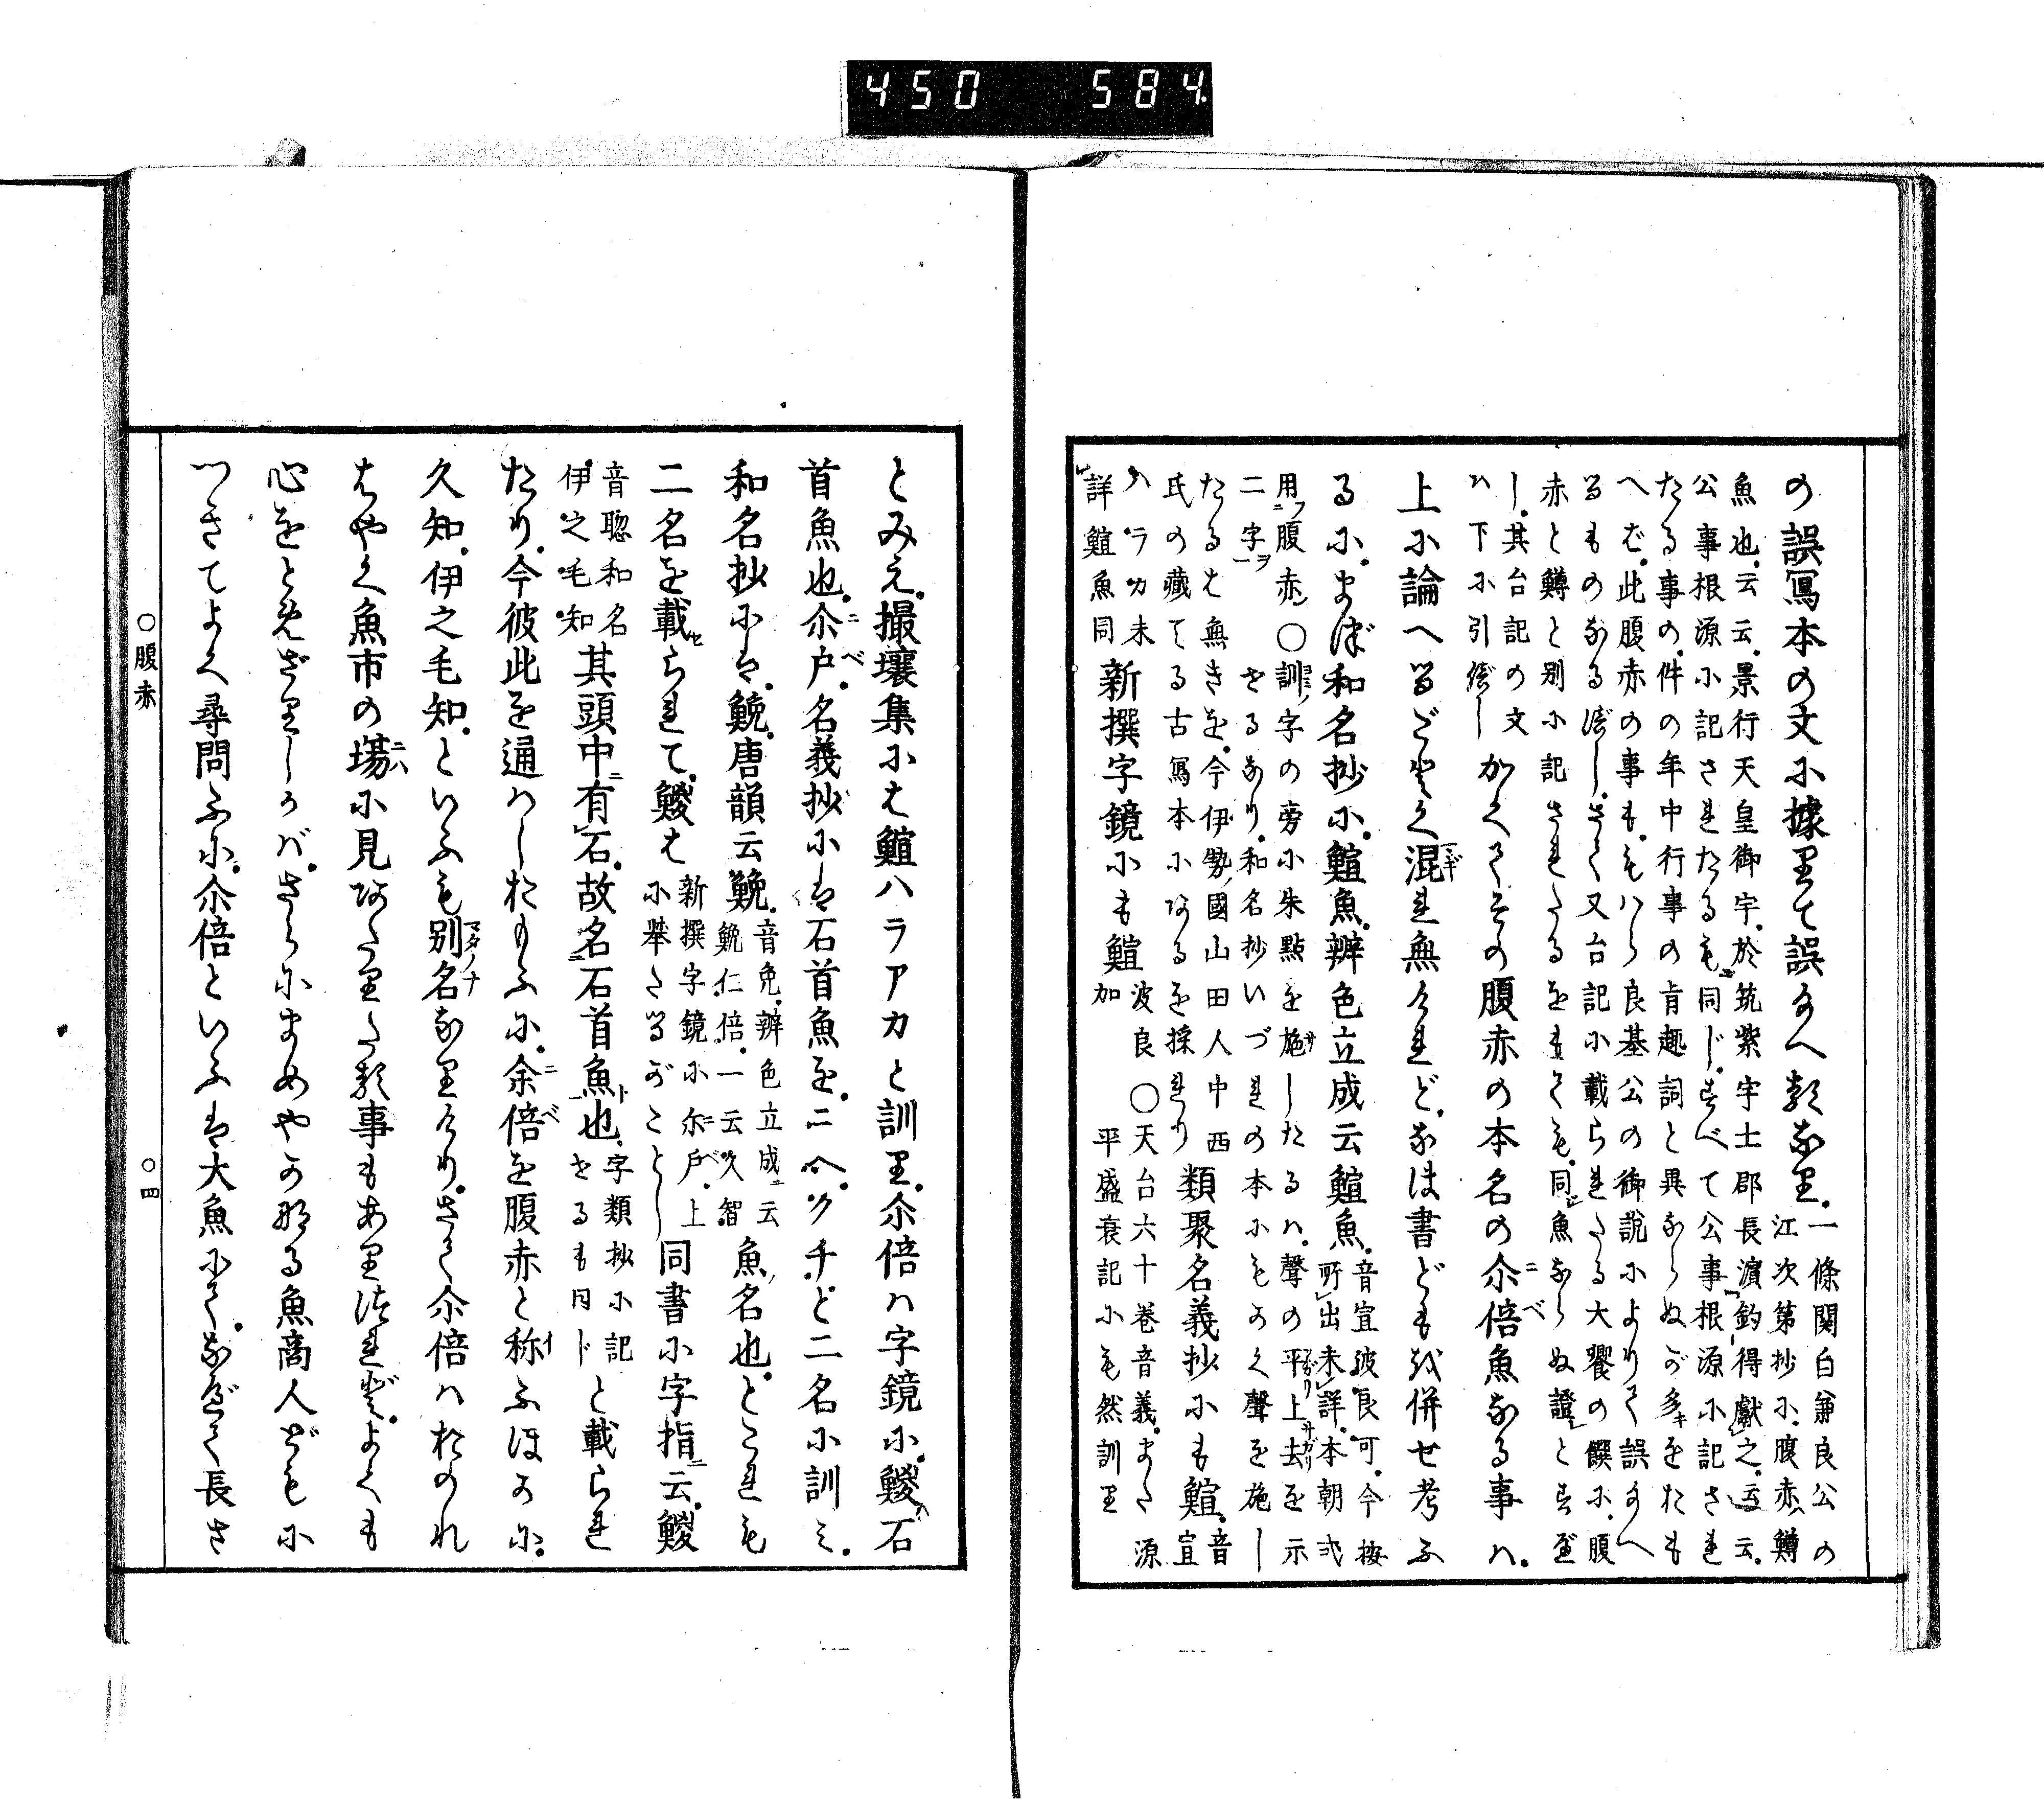 450 584
の誤寫本の文に據りて誤りへるなり。一條関白兼良公の
江次第抄に、腹赤ハ鱒
魚也。云云。景行天皇御宇。於筑紫宇土郡長濱釣得獻之。云云。
公事根源に記されたるも同じ。すべて公事根源に記され
たる事の。件の年中行事の肯趣詞と異ならぬが多きをおも
へば。此腹赤の事も。もハら良基公の御説によりて誤りへ
るものなるべし。さて又台記に載られたる大饗の饌に、腹
赤と鱒と別に記されたるをもても。同魚ならぬ證とすべ
し。其台記の文
ハ下に引べし
かくてその腹赤の本名の尒倍魚なる事ハ。
上に論へるごとく混れ無けれど。なほ書ども
併せ考ふ
るに。まづ和名抄に。䱵魚。辨色立成云䱵魚。音宣波良可。今按
所出未詳。本朝式
用腹赤二字。○訓字の旁に朱點を施したるハ。聲の平上去を示
せるなり。和名抄いづれの本にもかく聲を施し
たるは無きを。今伊勢國山田人中西
氏の藏てる古寫本にあるを採れり
類聚名義抄にも䱵。音宣
ハラカ未
詳䱵魚同
新撰字鏡にも䱵
波良
加
○天台六十巻音義。また源
平盛衰記にも然訓り
とみえ。撮壤集には䱵ハラアカと訓り。尒倍ハ字鏡に。鯼石
首魚也。尒戸。名義抄には石首魚を。ニヘ。クチと二名に訓み。
和名抄には。鮸。唐韻云鮸。音免。辨色立成云
鮸仁倍。一云久智
魚名也。とこれも
二名を載られて。鯼は
新撰字鏡に尒戸。上
に擧たるがごとし
同書に字指云。鯼
音聡和名
伊之毛知
其頭中有石。故名石首魚也。字類抄に記
せるも同じ
と載られ
たり。今彼此を通ハしおもふに。余倍を腹赤と称ふほかに。
久知。伊之毛知。といふも別名なりけり。さて尒倍ハおのれ
はやく魚市の場に見あたりた事もありつれど。よくも
心をとめざりしかバ。さらにまめやかなる魚商人どもに
つきてよく尋問ふに。尒倍といふは大魚にて。なべて長さ
○腹赤
○四